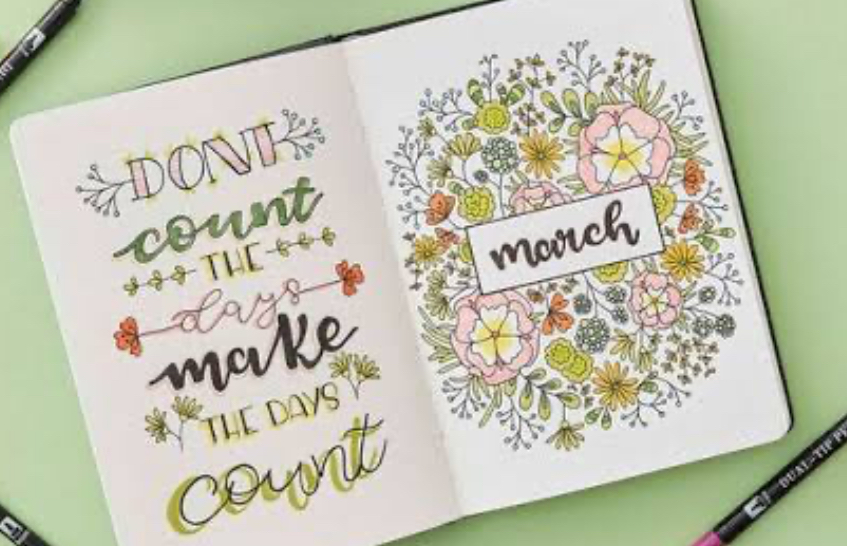 DON'T
count
THE
days
make
THE DAYS
count
march
DUAL-TIP PE